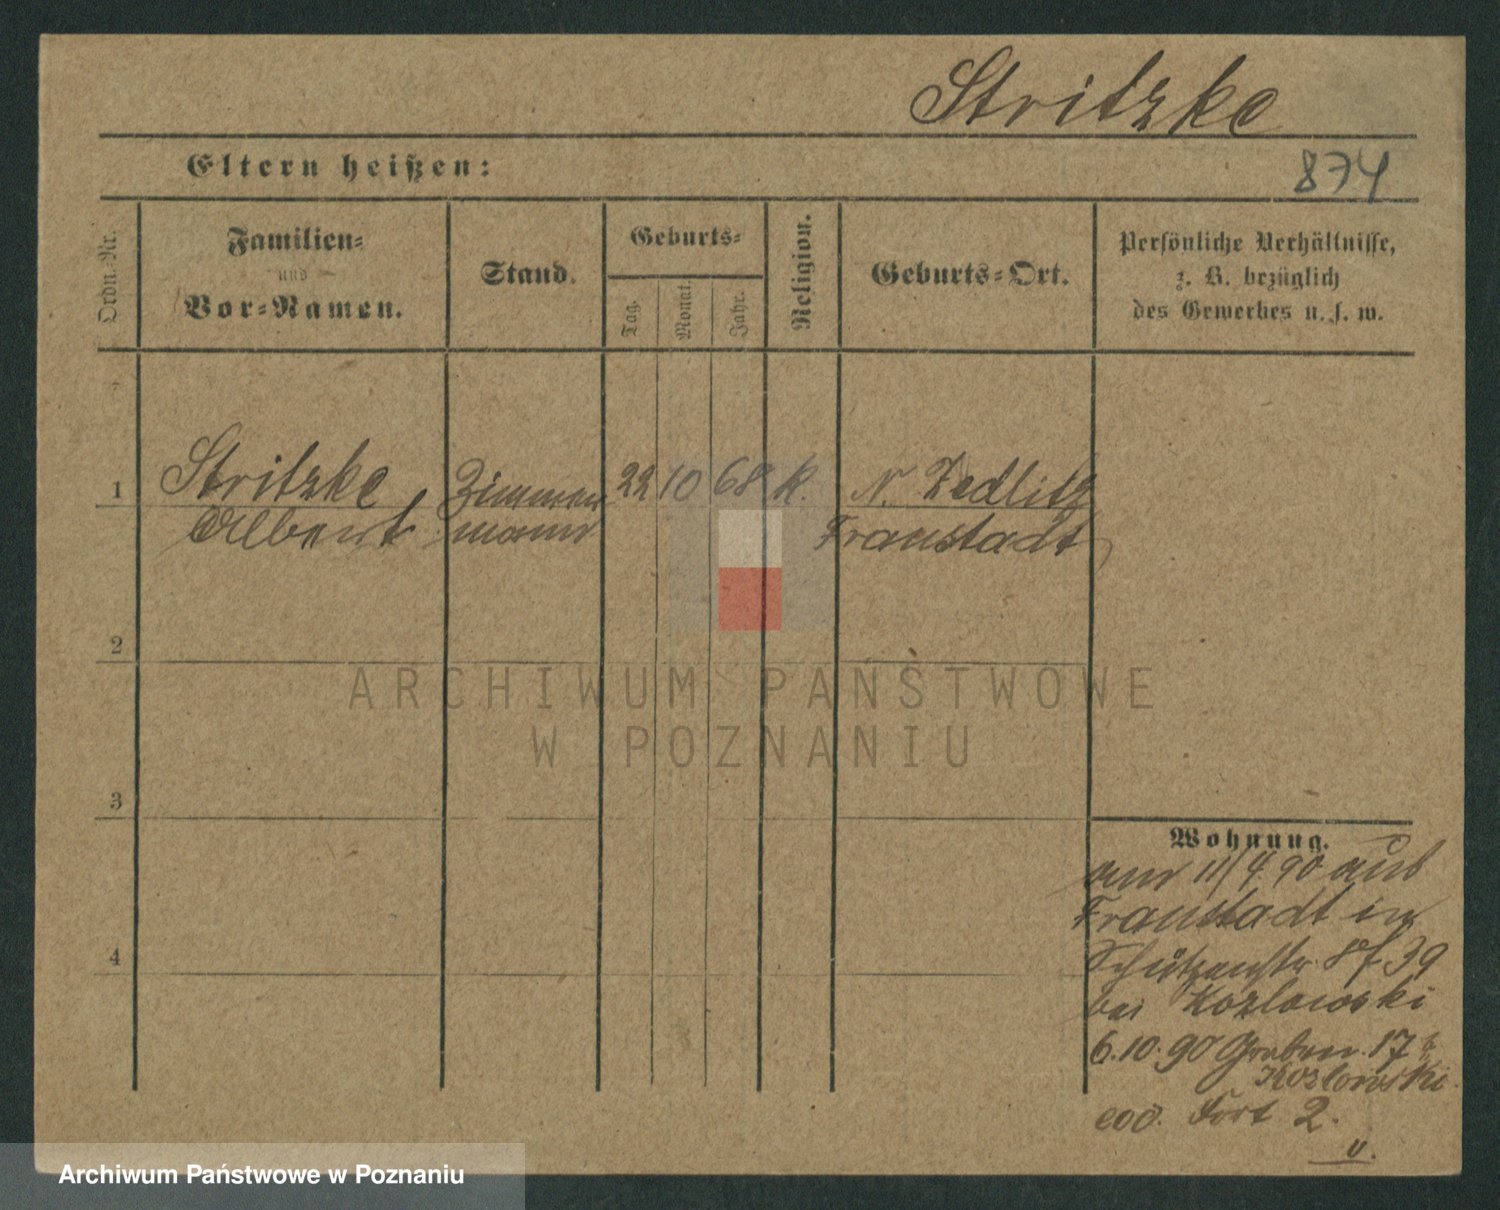 Stritzke
874
Eltern heißen:
Ordn.-Nr.
Familien-
und
Vor-Namen.
Stand.
Geburts-
Tag.
Monat.
Jahr.
Religion.
Geburts-Ort.
Persönliche Verhältnisse,
z. B. bezüglich
des Gewerbes u. s. w.
1
Stritzke
Albert
Zimmer
mann
22
10
68
k.
N. Zedlitz
Fraustadt
2
3
4
ARCHIWUM PAŃSTWOWE
W POZNANIU
Wohnung.
am 11/4 90 aus
Fraustadt in
Schützenstr. 39
bei Kozlowski
6.10.90 Graben 17
Kozlowski
eod. Fort 2.
Archiwum Państwowe w Poznaniu